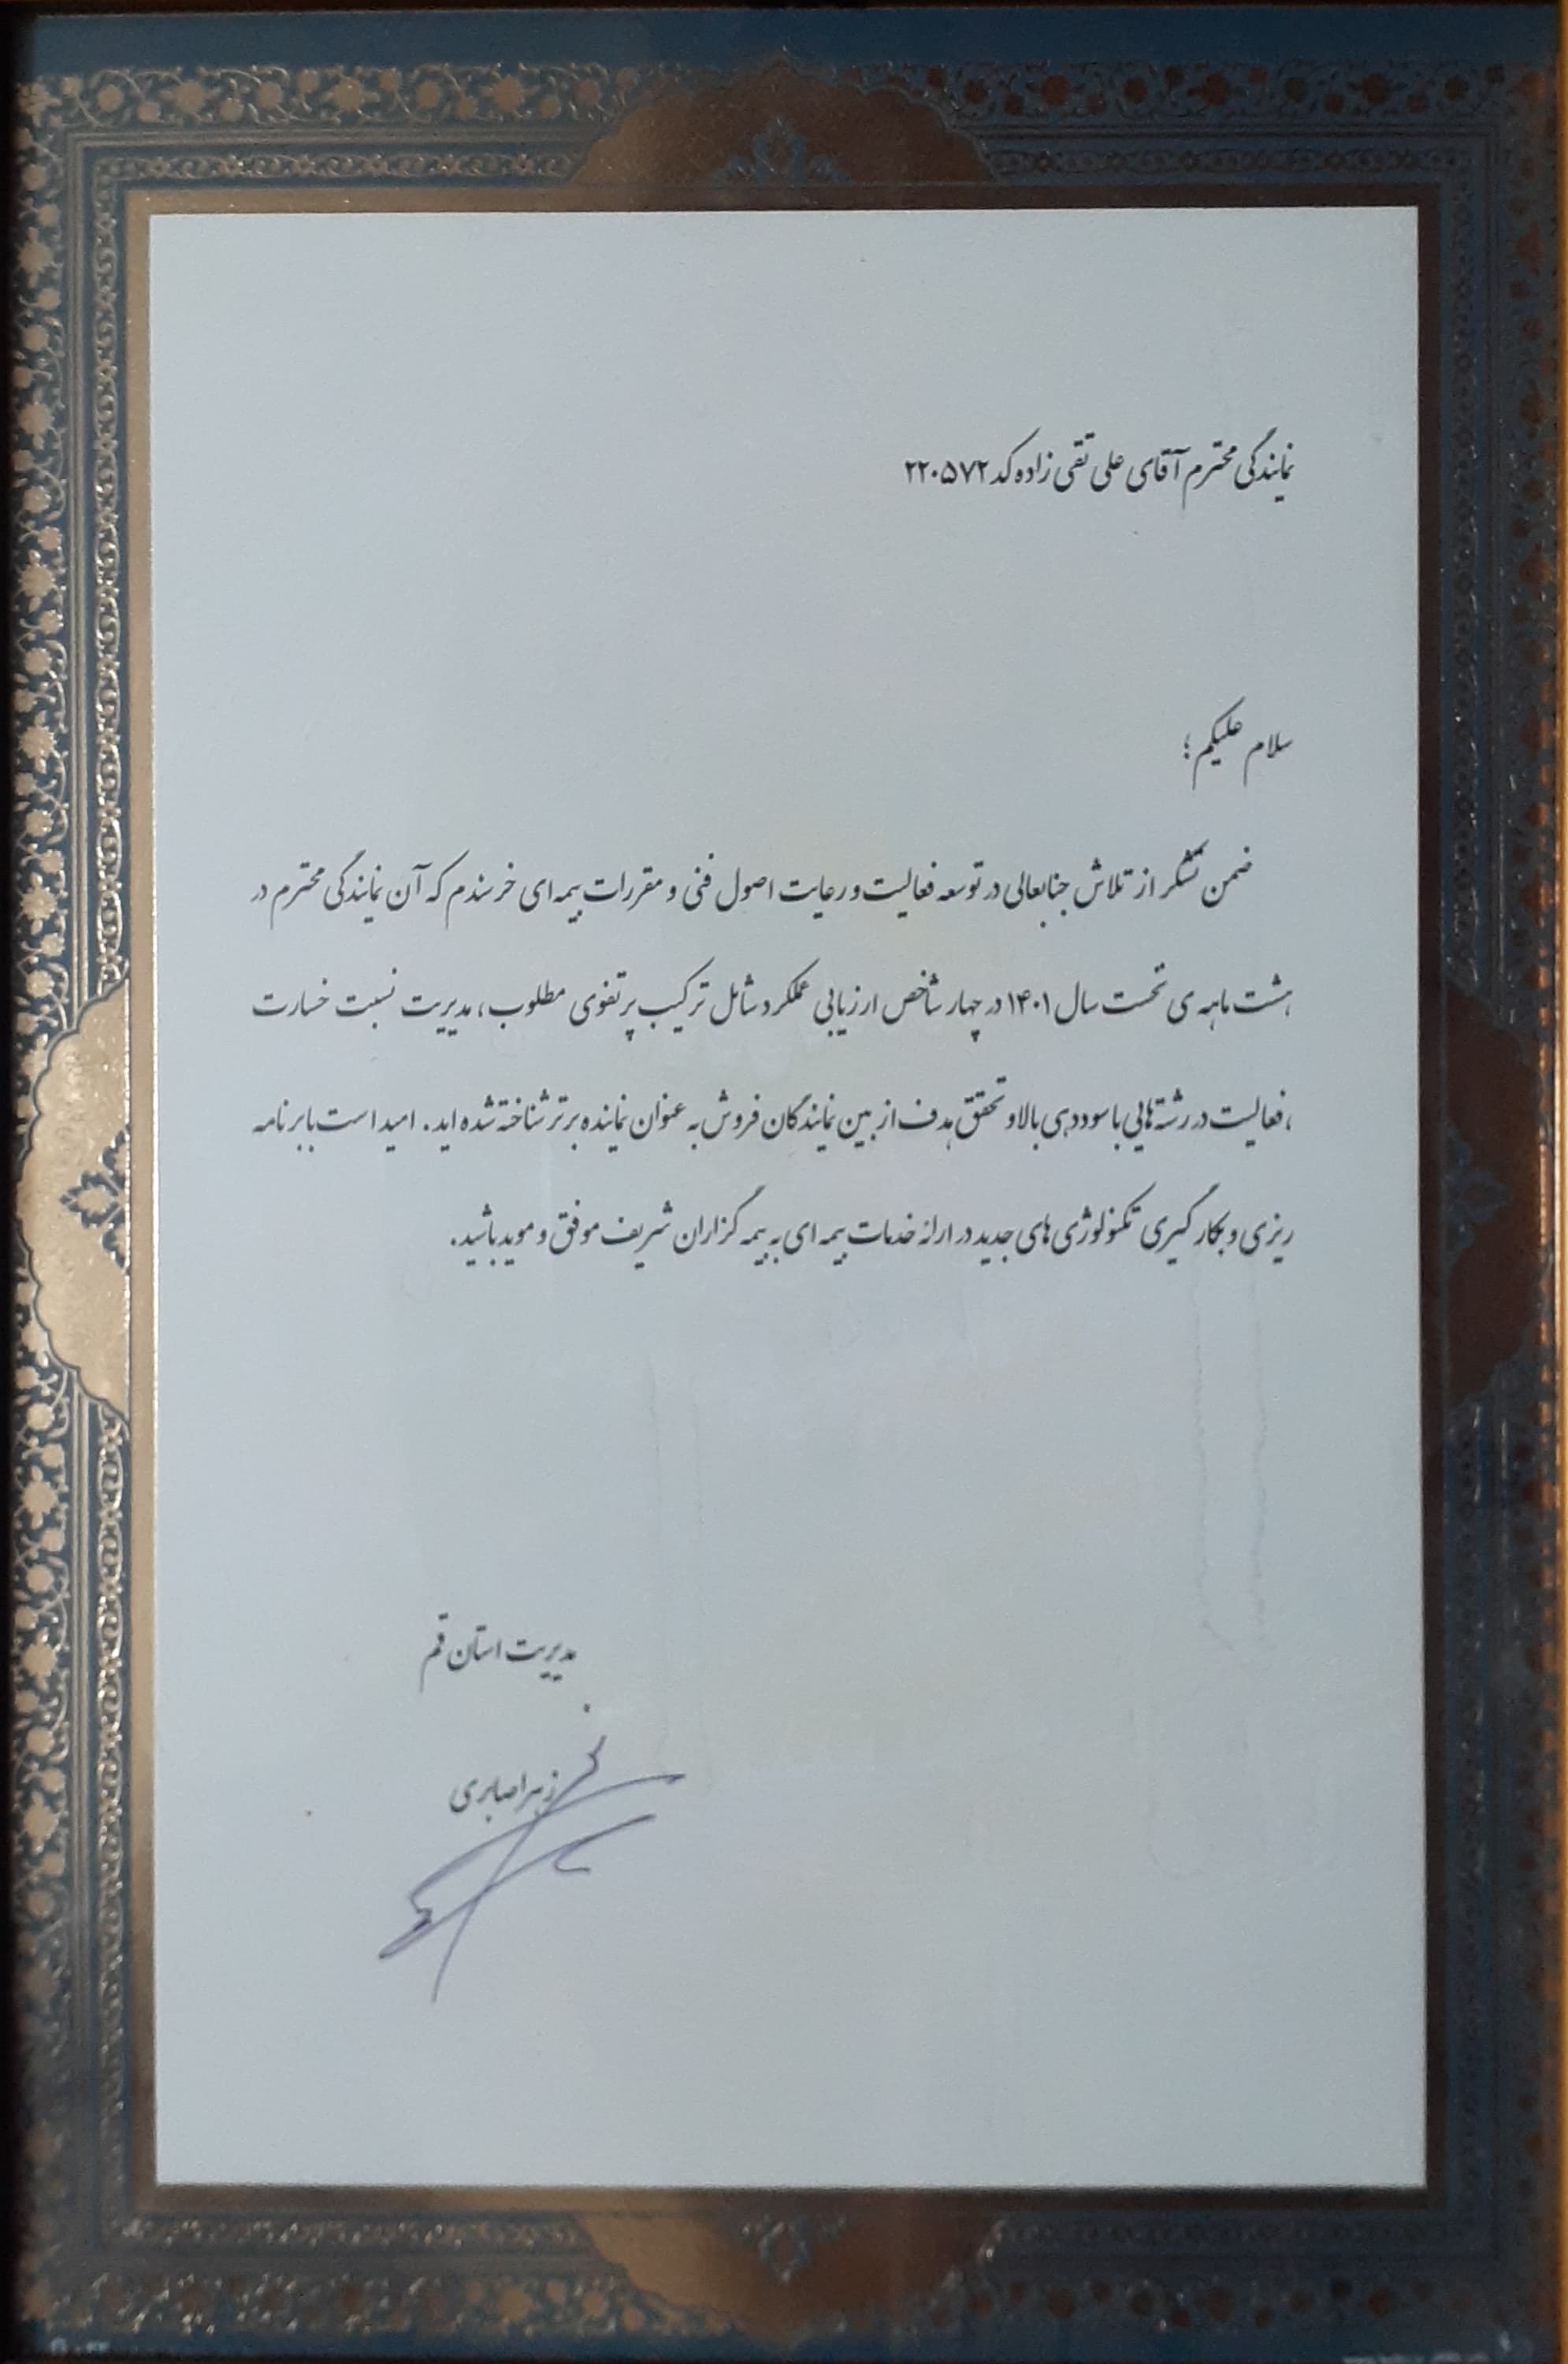 نمایندگی محترم آقای علی تقی زاده کد ۲۲۰۵۷۲
سلام علیکم؛
ضمن تشکر از تلاش جنابعالی در توسعه فعالیت و رعایت اصول فنی و مقررات بیمه ای خرسندم که آن نمایندگی محترم در
هشت ماهه ی نخست سال ۱۴۰۱ در چهار شاخص ارزیابی عملکرد شامل ترکیب پرتفوی مطلوب، مدیریت نسبت خسارت
، فعالیت در رشته هایی با سوددهی بالا و تحقق هدف از بین نمایندگان فروش به عنوان نماینده برتر شناخته شده اید. امید است با برنامه
ریزی و بکارگیری تکنولوژی های جدید در ارائه خدمات بیمه ای به بیمه گزاران شریف موفق و موید باشید.
مدیریت استان قم
زهرا صابری